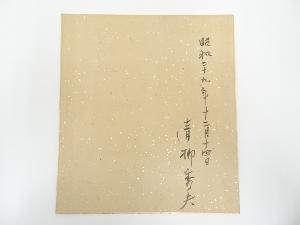 昭和二十九年十二月十四日
清柳秀夫